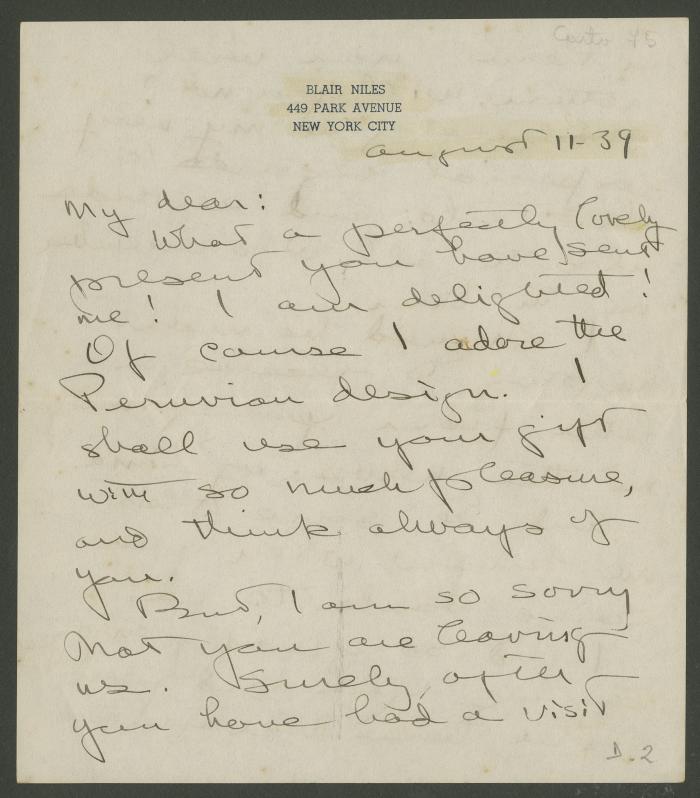 Carta 75
BLAIR NILES
449 PARK AVENUE
NEW YORK CITY
August 11-39
My dear:
What a perfectly lovely
present you have sent
me! I am delighted!
Of course I adore the
Peruvian design. I
shall use your gift
with so much pleasure,
and think always of
you.
But, I am so sorry
that you are leaving
us. Surely, after
you have had a visit
D. 2